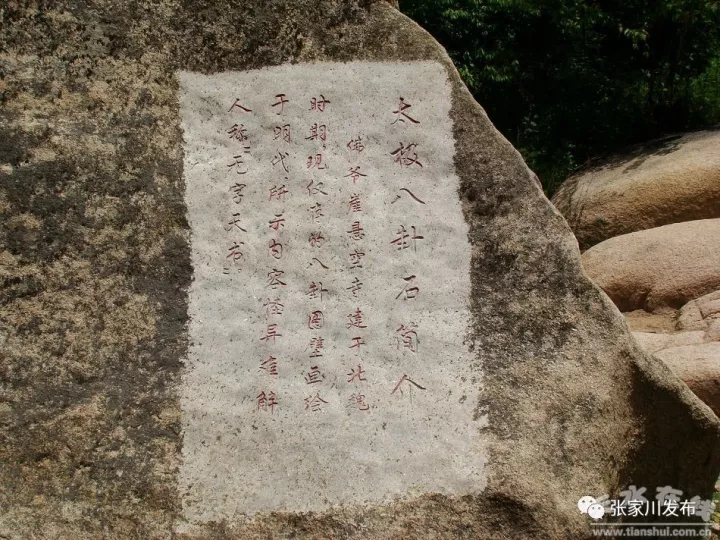 太极八卦石简介
佛爷崖悬空寺建于北魏
时期,现仅存的八卦图壁画绘
于明代所示内容怪异难解
人称“无字天书”
张家川发布
天水在线
www.tianshui.com.cn